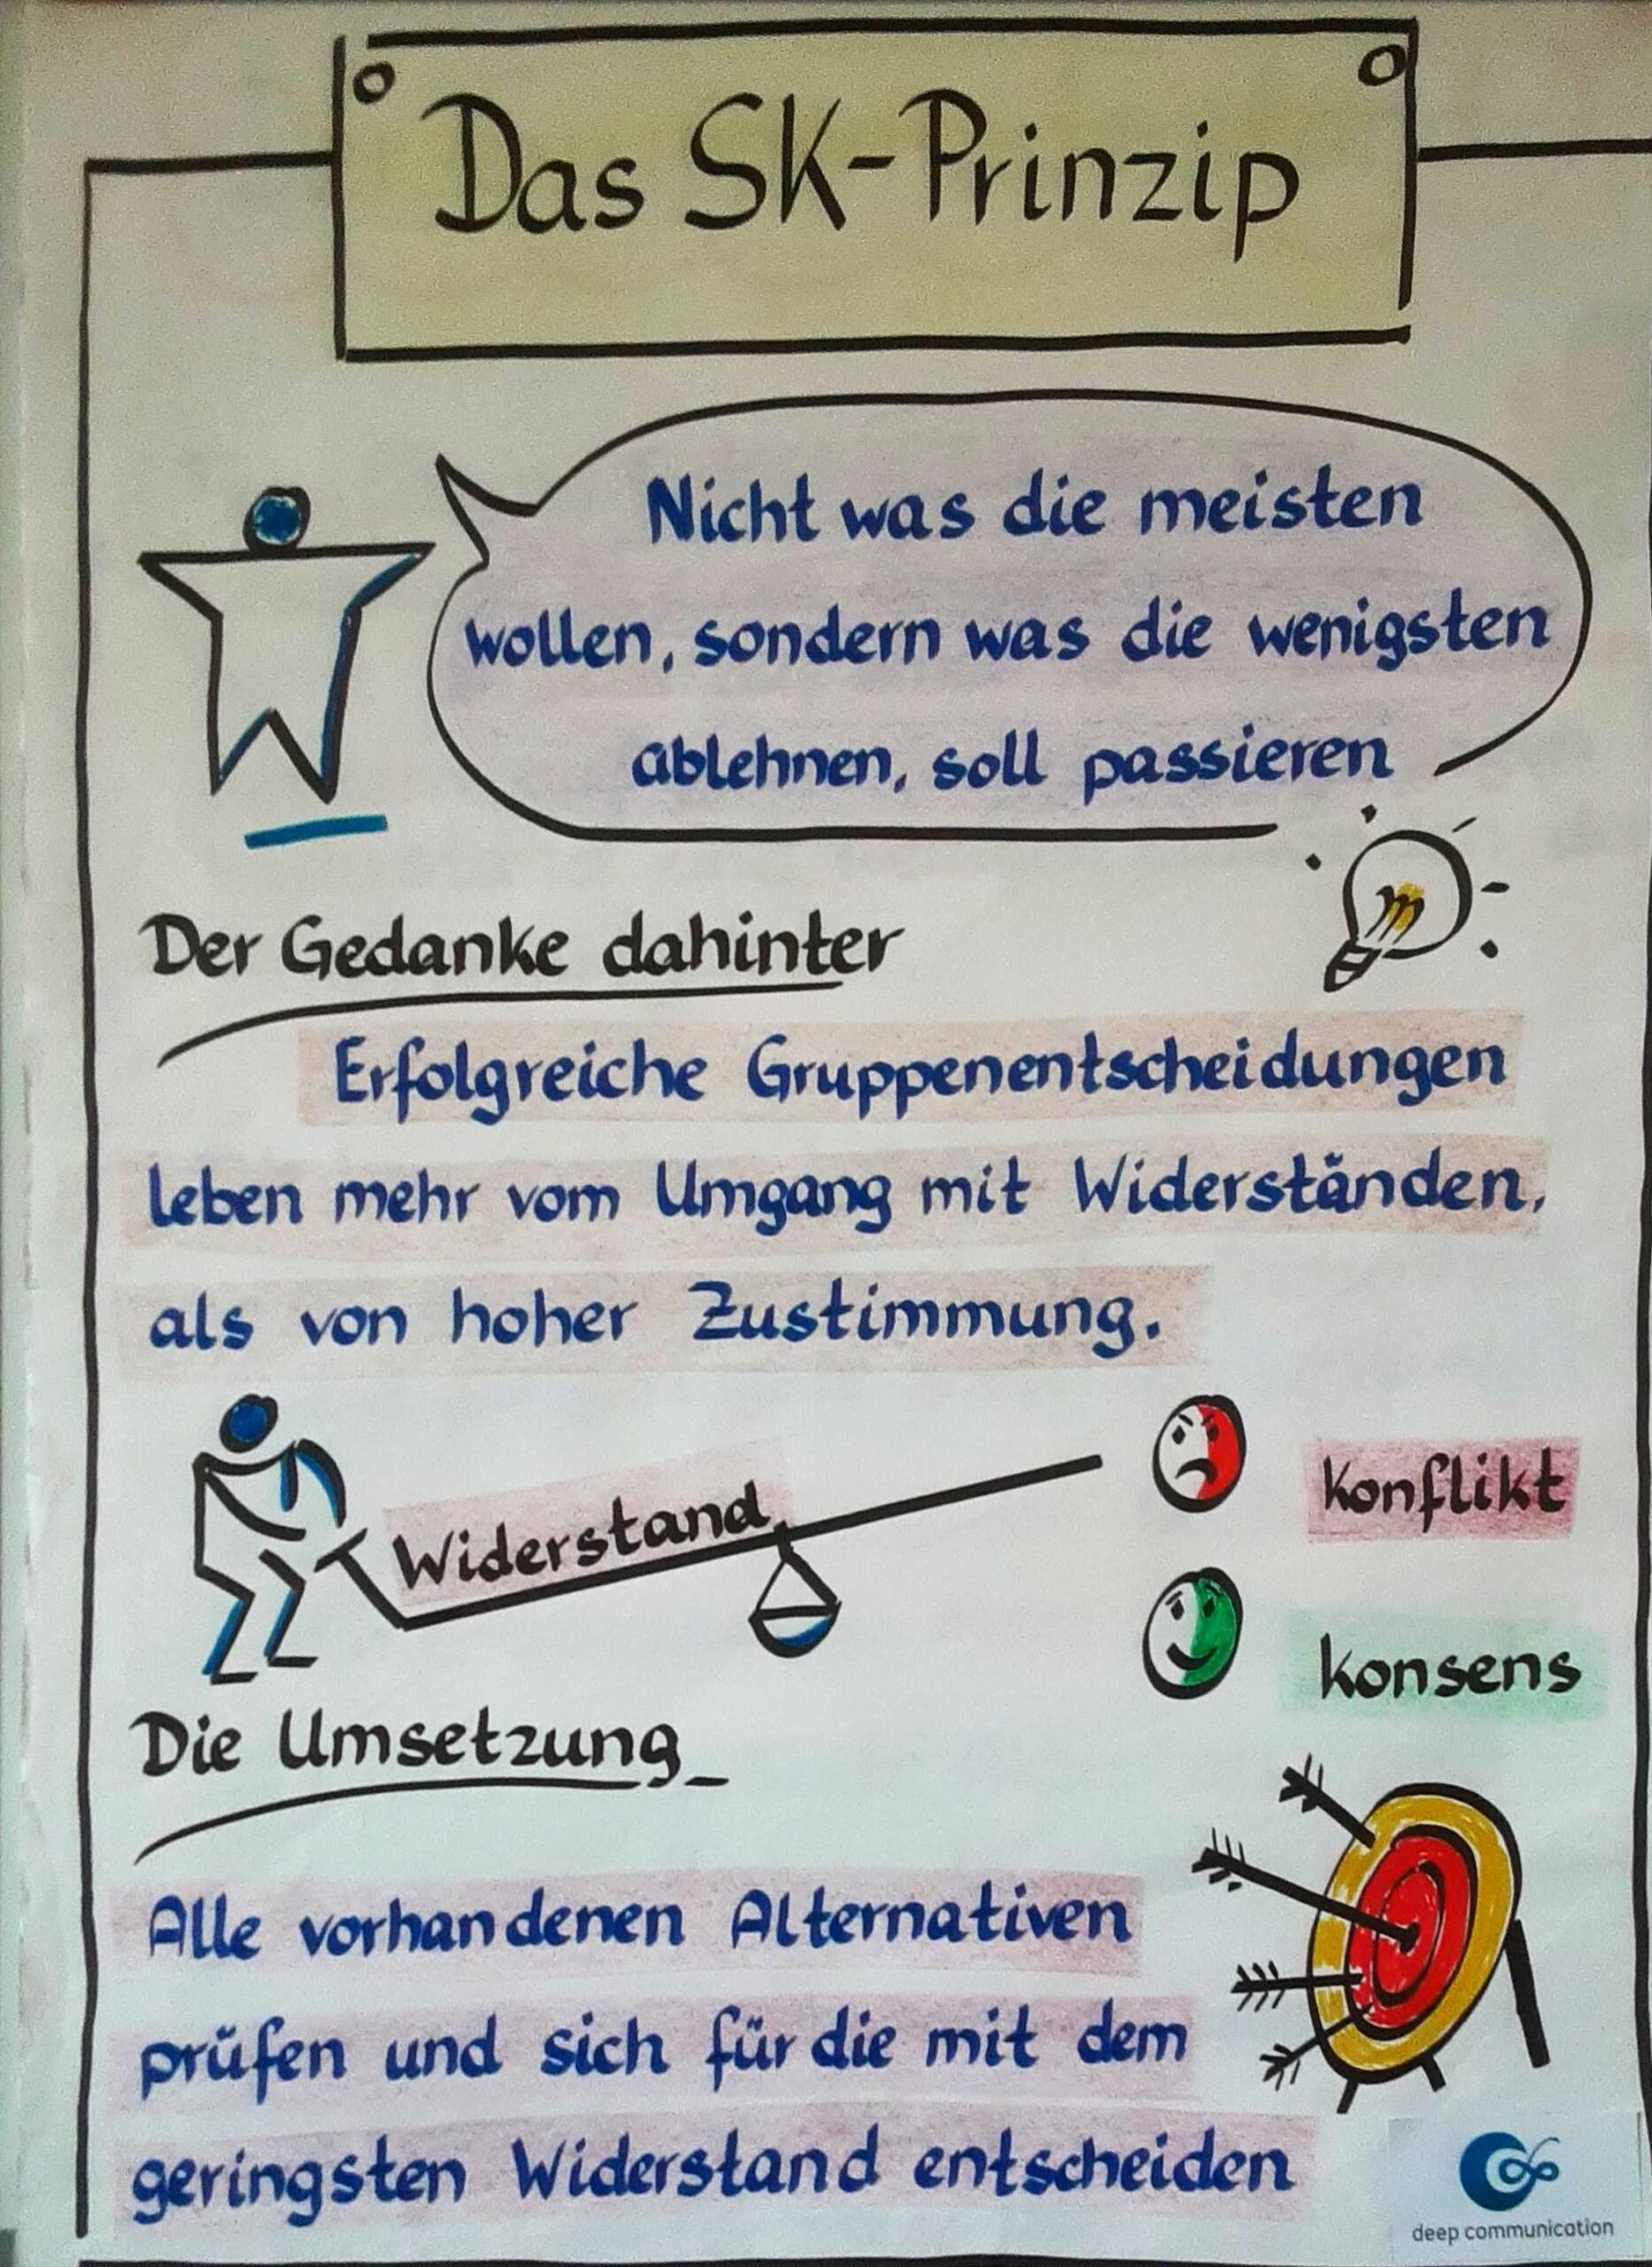 Das SK-Prinzip
Nicht was die meisten
wollen, sondern was die wenigsten
ablehnen, soll passieren
Der Gedanke dahinter
Erfolgreiche Gruppenentscheidungen
leben mehr vom Umgang mit Widerständen,
als von hoher Zustimmung.
Widerstand
Konflikt
Konsens
Die Umsetzung
Alle vorhandenen Alternativen
prüfen und sich für die mit dem
geringsten Widerstand entscheiden
deep communication